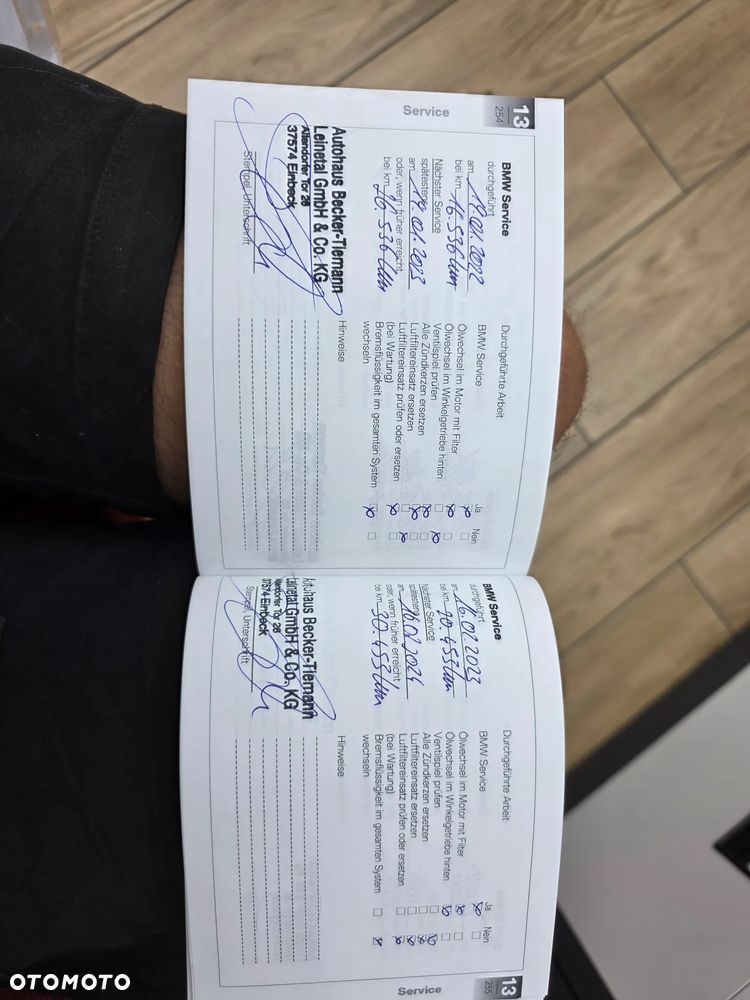 13
254
Service
BMW Service
durchgeführt
am 19.01.2022
bei km 16.536 km
Nächster Service
spätestens
am 19.01.2023
oder, wenn früher erreicht
bei km
Autohaus Becker-Tiemann
Leinetal GmbH & Co. KG
Altendorfer Tor 26
37574 Einbeck
Stempel, Unterschrift
Durchgeführte Arbeit
BMW Service
Ja Nein
Ölwechsel im Motor mit Filter
Ölwechsel im Winkelgetriebe hinten
Ventilspiel prüfen
Alle Zündkerzen ersetzen
Luftfiltereinsatz ersetzen
Luftfiltereinsatz prüfen oder ersetzen
(bei Wartung)
Bremsflüssigkeit im gesamten System
wechseln
Hinweise
BMW Service
durchgeführt
am 16.02.2023
bei km 20.453 km
Nächster Service
spätestens
am 16.02.2024
oder, wenn früher erreicht
bei km 30.453 km
Autohaus Becker-Tiemann
Leinetal GmbH & Co. KG
Altendorfer Tor 26
37574 Einbeck
Stempel, Unterschrift
Durchgeführte Arbeit
BMW Service
Ja Nein
Ölwechsel im Motor mit Filter
Ölwechsel im Winkelgetriebe hinten
Ventilspiel prüfen
Alle Zündkerzen ersetzen
Luftfiltereinsatz ersetzen
Luftfiltereinsatz prüfen oder ersetzen
(bei Wartung)
Bremsflüssigkeit im gesamten System
wechseln
Hinweise
13
255
Service
OTOMOTO